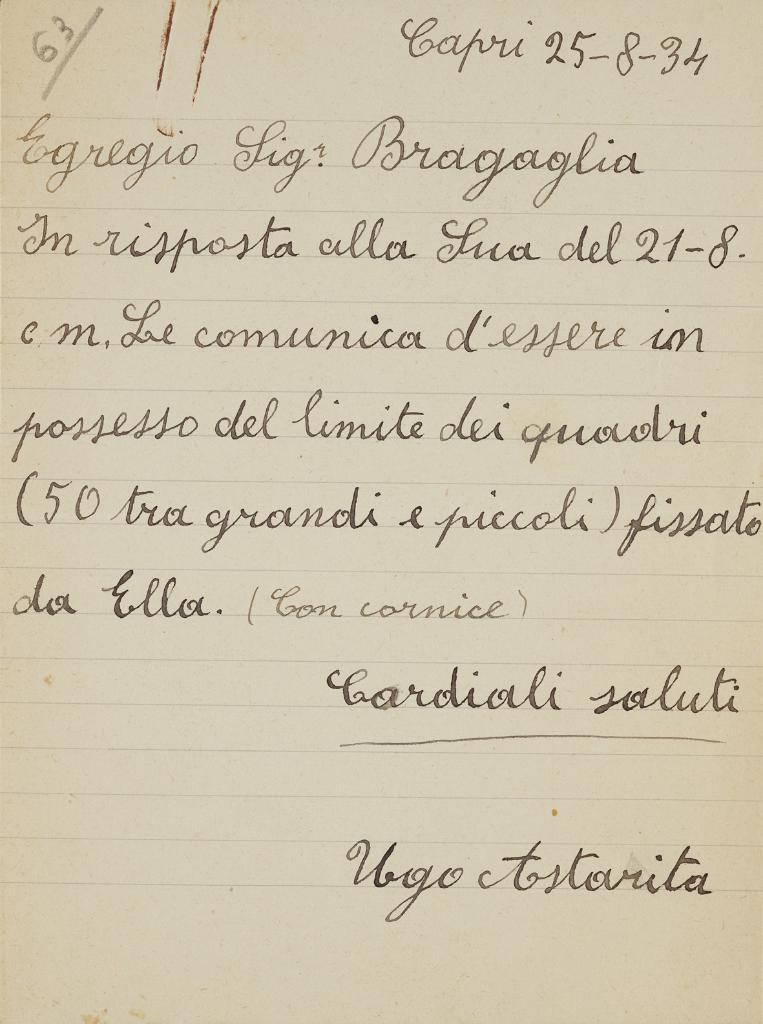 63/
Capri 25-8-34
Egregio Sigr. Bragaglia
In risposta alla Sua del 21-8.
c m. Le comunica d'essere in
possesso del limite dei quadri
(50 tra grandi e piccoli) fissato
da Ella. (Con cornice)
Cordiali saluti
Ugo Astarita